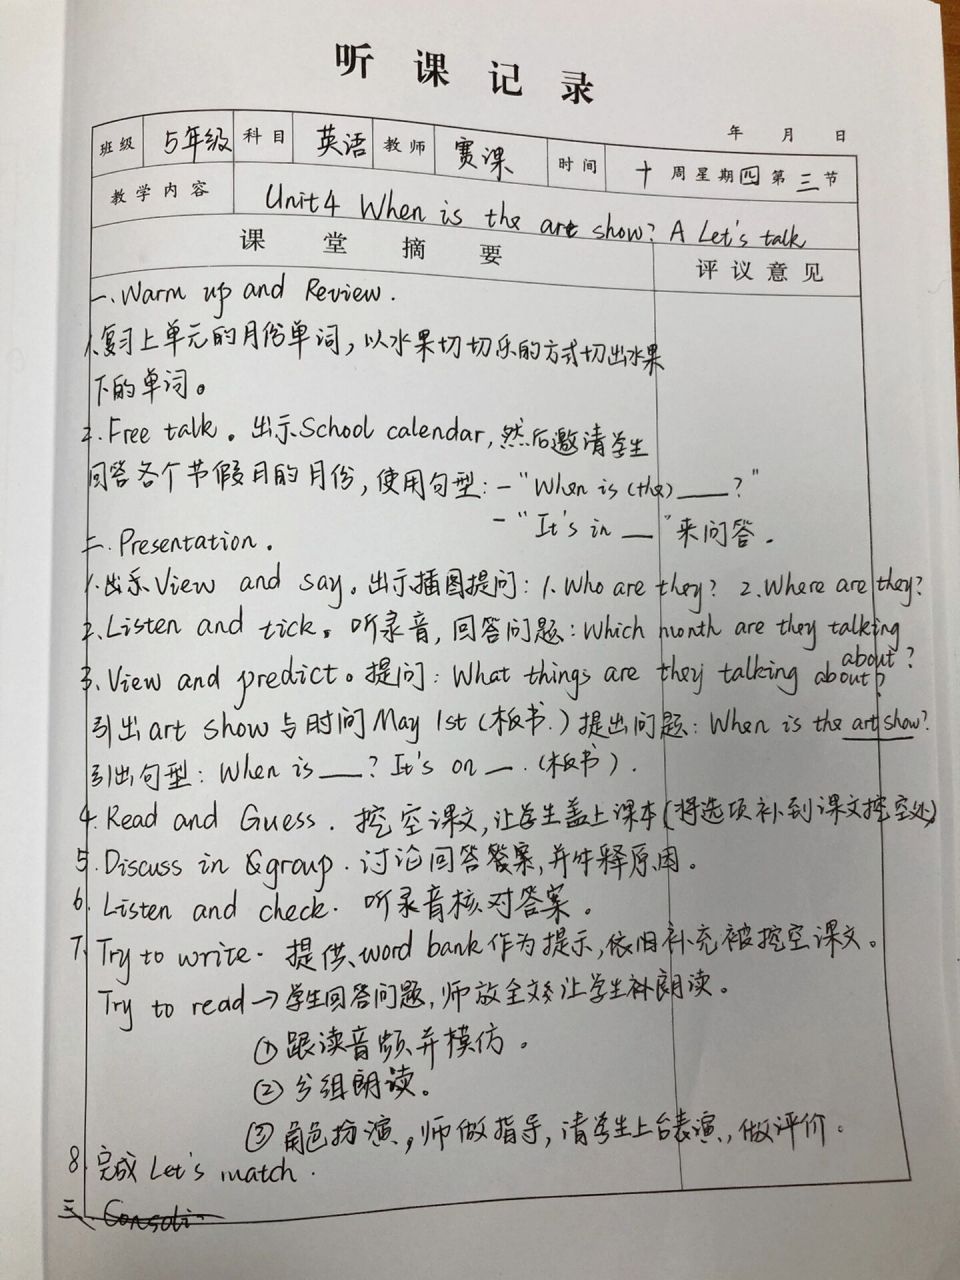 听课记录
年 月 日
班级 5年级 科目 英语 教师 赛课 时间 十周星期四第三节
教学内容 Unit4 When is the art show? A Let's talk
课堂摘要 评议意见
一、Warm up and Review.
1.复习上单元的月份单词，以水果切切乐的方式切出水果
下的单词。
2.Free talk。出示School calendar,然后邀请学生
回答各个节假日的月份，使用句型：—"When is (the)____?"
—"It's in __"来问答.
二. Presentation.
1.出示View and say。出示插图提问：1.Who are they? 2.Where are they?
2.Listen and tick。听录音,回答问题：Which month are they talking
about?
3.View and predict。提问：What things are they talking about?
引出art show与时间May 1st (板书.) 提出问题：When is the art show?
引出句型：When is ___? It's on __. (板书).
4.Read and Guess. 挖空课文,让学生盖上课本(将选项补到课文挖空处)
5.Discuss in group. 讨论回答答案,并解释原因。
6.Listen and check. 听录音核对答案。
7.Try to write. 提供word bank作为提示,依旧补充被挖空课文。
Try to read→学生回答问题,师放全文让学生朗读。
①跟读音频并模仿。
②分组朗读。
③角色扮演,师做指导,请学生上台表演,做评价。
8.完成Let's match.
三、Consoli-